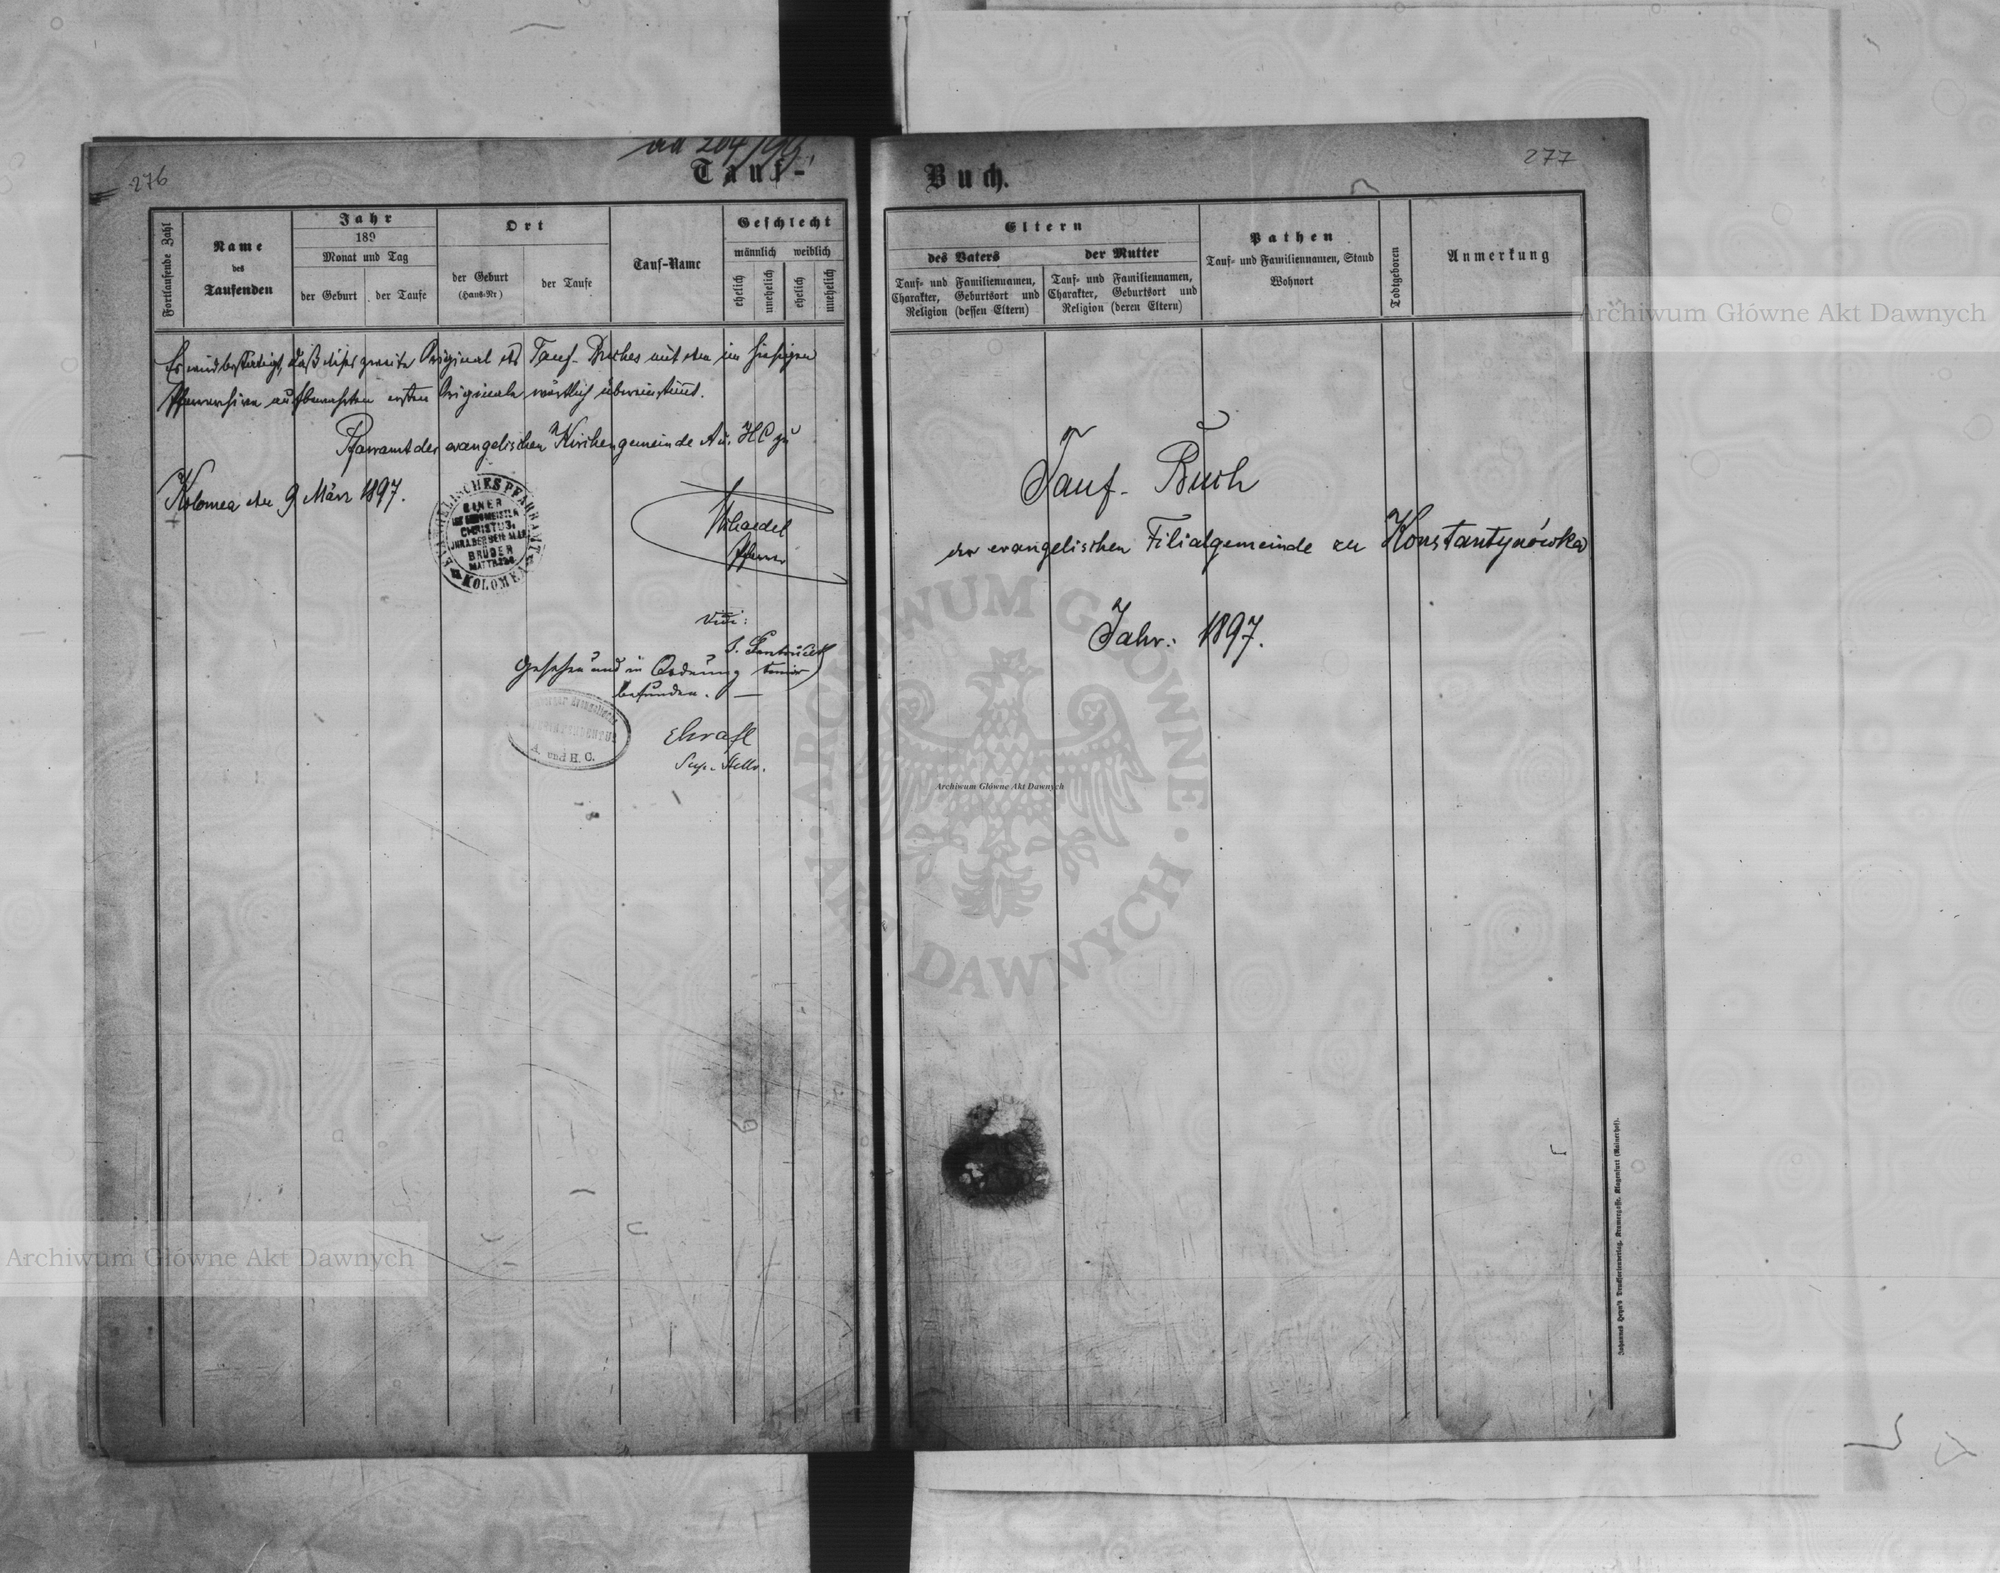 276
ad 204/99
Tauf-
Fortlaufende Zahl
Name
des
Taufenden
Jahr
189
Monat und Tag
der Geburt
der Taufe
Ort
der Geburt
(Haus-Nr)
der Taufe
Tauf-Name
Geschlecht
männlich weiblich
ehelich
unehelich
ehelich
unehelich
Es wird bestätigt, daß dieses zweite Original des Tauf-Buches mit dem im hiesigen
Pfarrarchive aufbewahrten ersten Originale wörtlich übereinstimmt.
Pfarramt der evangelischen Kirchengemeinde A. u. HC zu
Kolomea den 9 März 1897.
EVANGELISCHES PFARRAMT
EINER
IST EUER MEISTER
CHRISTUS,
IHR ABER SEID ALLE
BRÜDER
MATTH. 23,8
KOLOMEA
Pfarrer
Vidi:
Gesehen und in Ordnung
befunden.
A. und H. C.
Sup. Stellv.
277
Buch.
Eltern
des Vaters
Tauf- und Familiennamen,
Charakter, Geburtsort und
Religion (dessen Eltern)
der Mutter
Tauf- und Familiennamen,
Charakter, Geburtsort und
Religion (deren Eltern)
Pathen
Tauf- und Familiennamen, Stand
Wohnort
Todtgeboren
Anmerkung
Tauf-Buch
der evangelischen Filialgemeinde zu Konstantynówka
Jahr: 1897.
Johannes Heyn's Drucksortenverlag, Kramergasse, Klagenfurt (Kainerhof).
Archiwum Główne Akt Dawnych
ARCHIWUM GŁÓWNE
AKT DAWNYCH
Archiwum Główne Akt Dawnych
Archiwum Główne Akt Dawnych